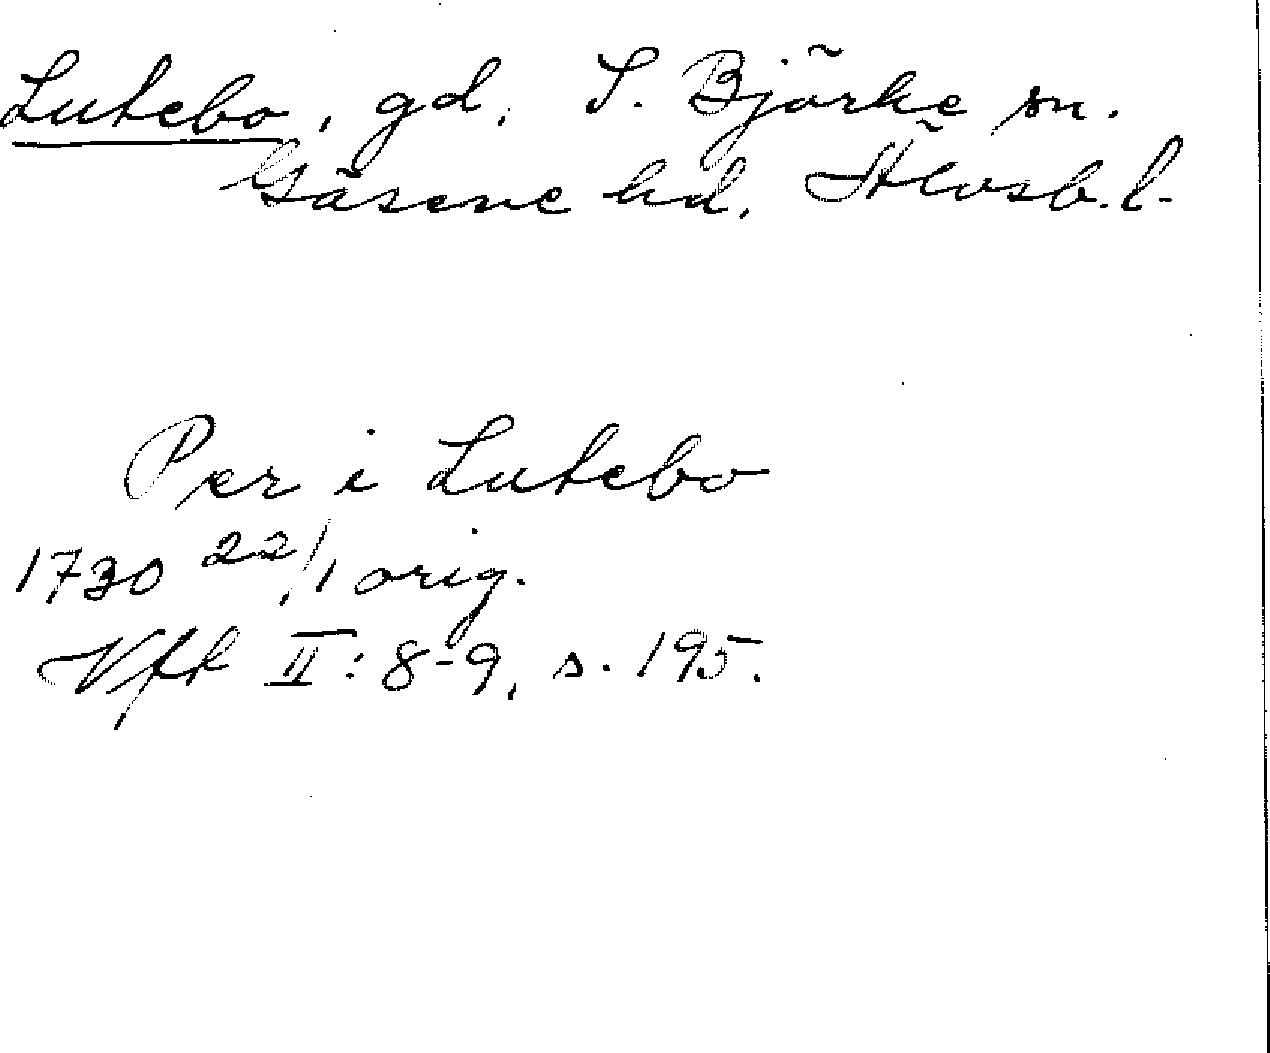 Lutebo, gd, S. Björke sn.
Gäsene hd, Älvsb. l.
Per i Lutebo
1730 22/1 orig.
Vft II: 8-9, s. 195.